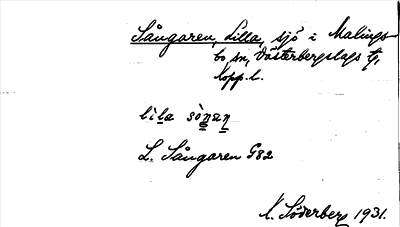 Sångaren, Lilla, sjö i Malings-
bo sn, Västerbergslags tg,
Kopp. l.
lìla sòŋaŋ
L. Sångaren G82
K. Söderberg 1931.